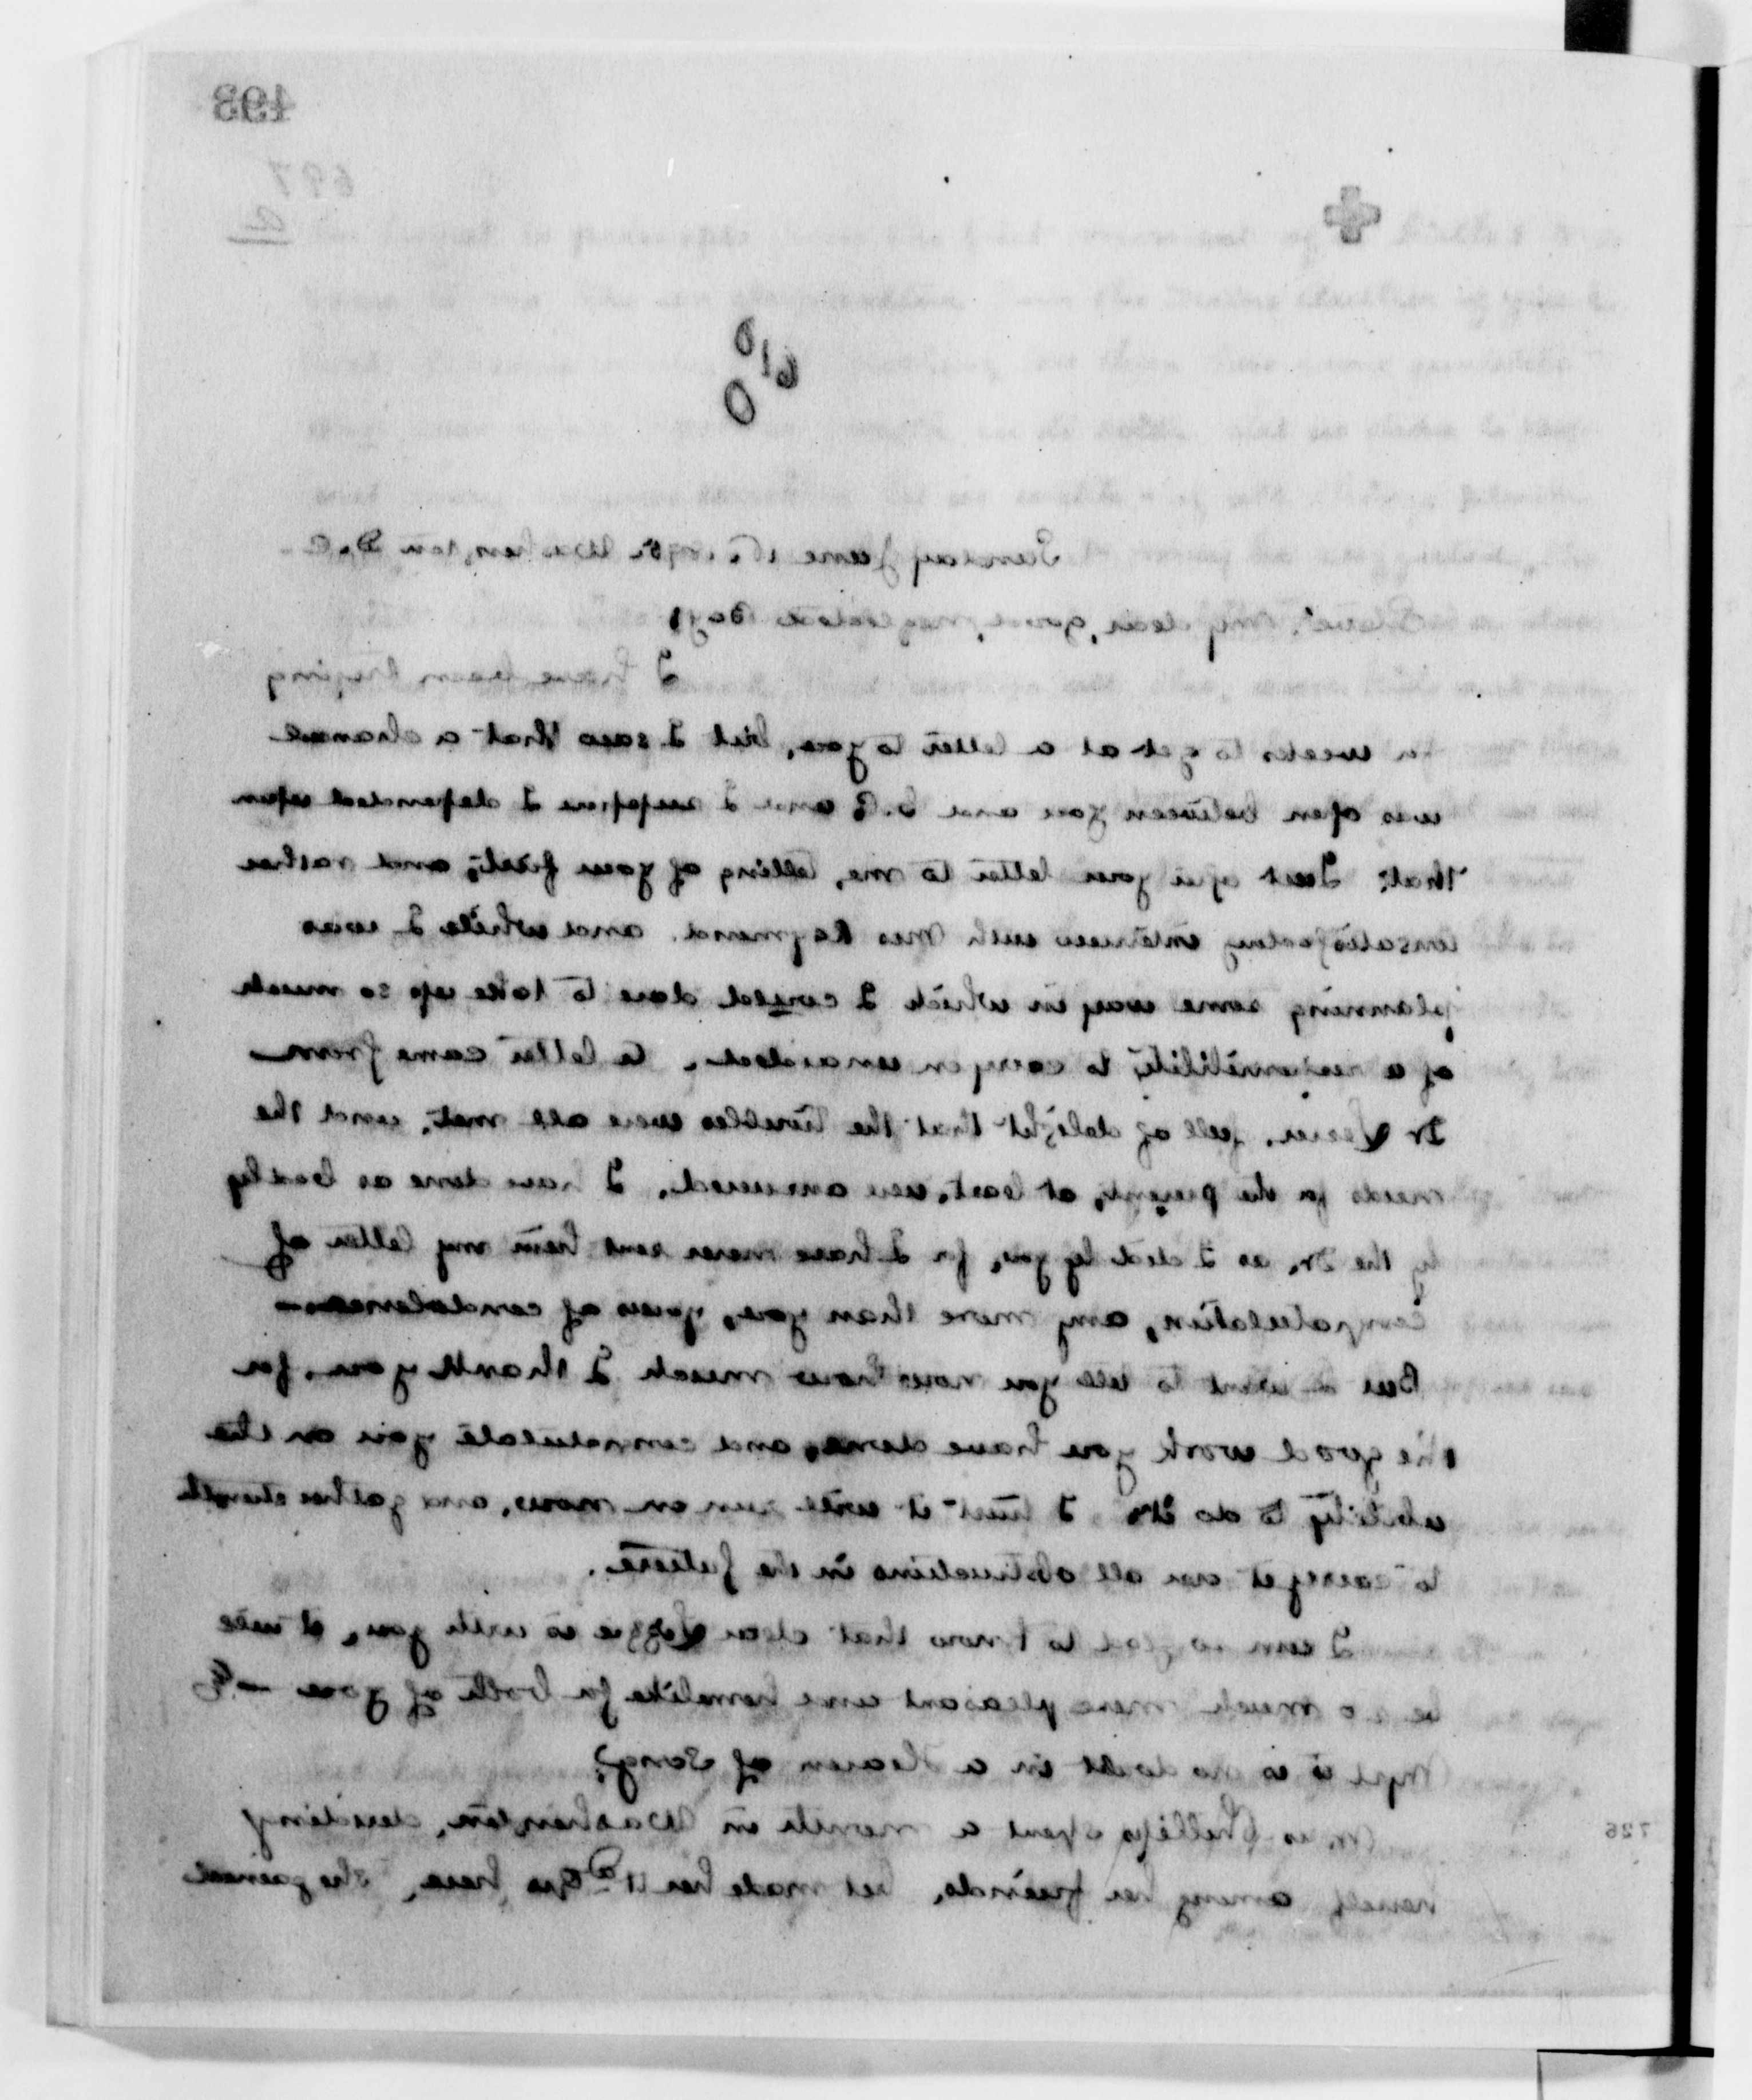 498
697
a
Sunday June 16. 1895. Washington D.C.
My dear, good, neglected Boy,
I have been trying
for weeks to get at a letter to you, but I saw that a channel
was open between you and and I suppose I depended upon
that. Just after your letter to me, telling of your first, and rather
unsatisfactory interview with Mrs Raymond. and while I was
planning some way in which I could dare to take up so much
of a responsibility to carry on unaided. a letter came from
Dr full of delight that the troubles were all met, and the
needs for the present, at least, were answered. I have done as badly
by the Dr. as I did by you, for I have never sent him my letter of
congratulation, any more than you, yours of condolence—
But I want to tell you now how much I thank you, for
the good work you have done, and congratulate you on the
ability to do it. I trust it will run on now, and gather strength
to carry it over all obstructions in the future.
I am so glad to know that dear Lizzie is with you, it will
be so much more pleasant and homelike for both of you —
is no doubt in a Heaven of song?
Mrs Phillips spent a month in Washington, dividing
herself among her friends, but made her Hd Qrs here, she gained
726